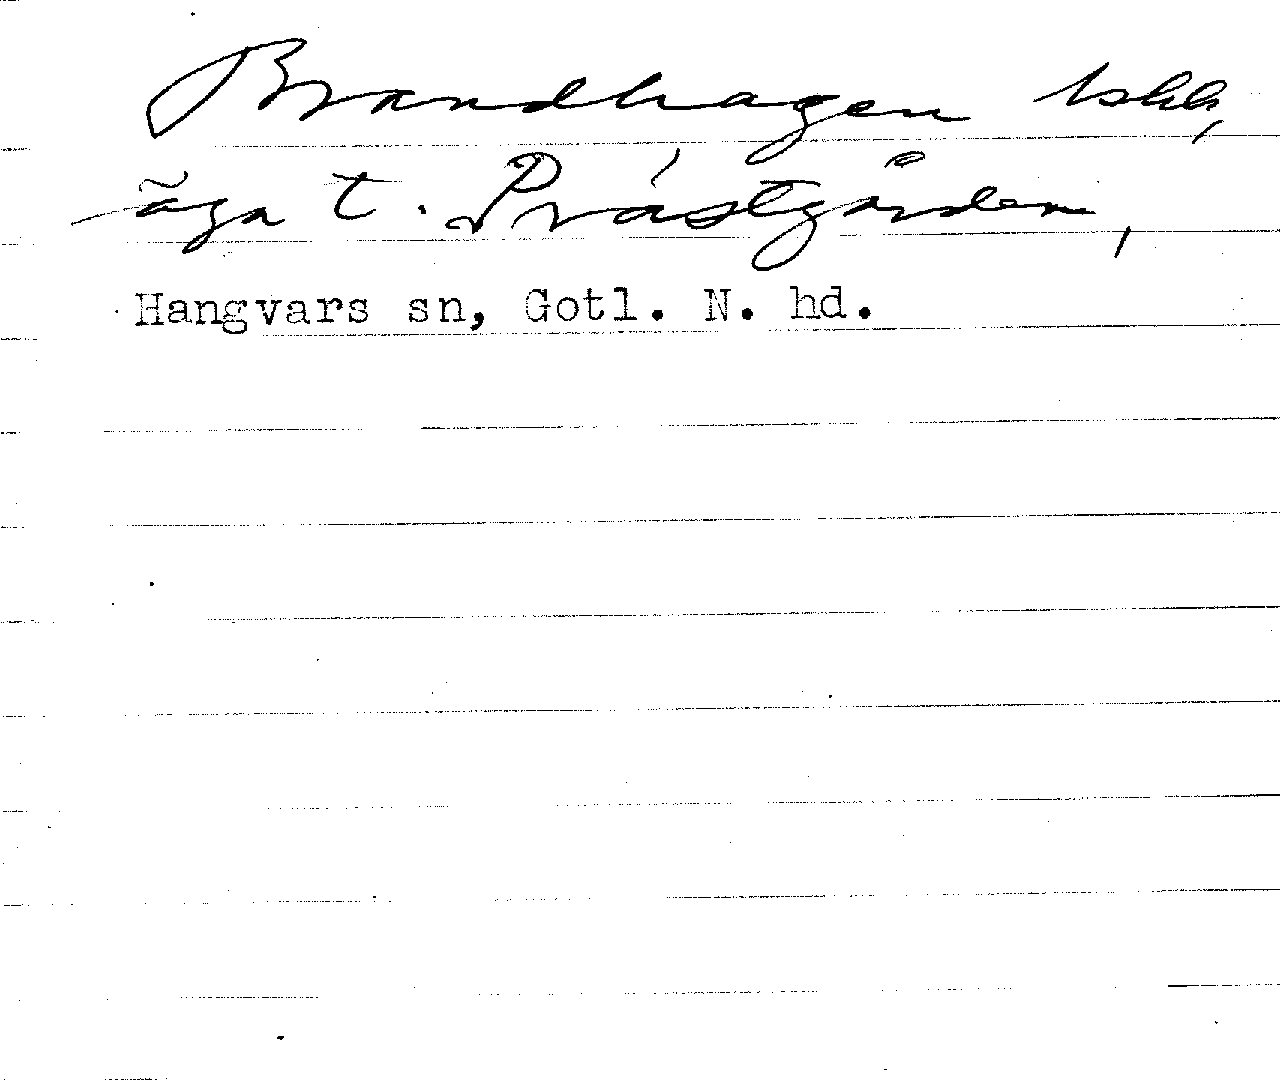 Brandhagen 1skk,
äga t. Prästgården,
Hangvars sn, Gotl. N. hd.